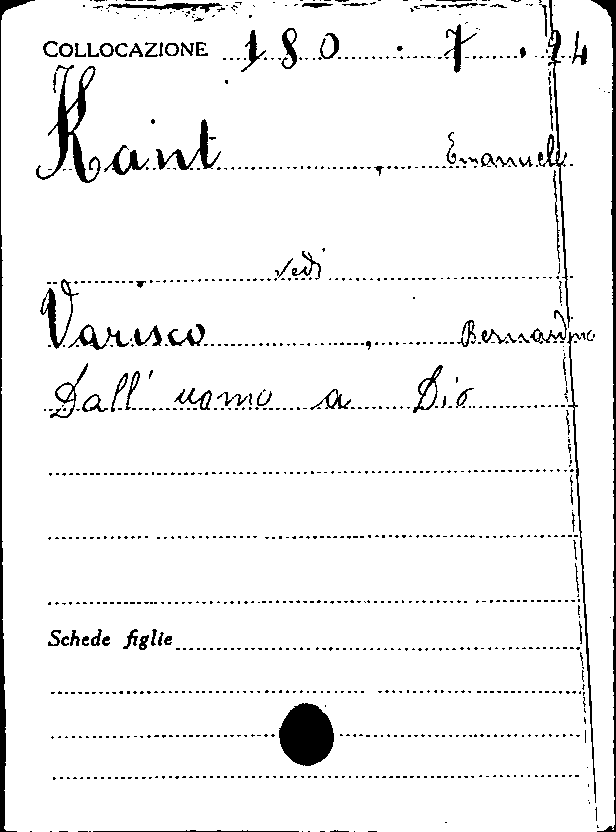 COLLOCAZIONE 180 . 7 . 24
Kant , Emanuele
vedi
Varisco , Bernardino
Dall' uomo a Dio
Schede figlie